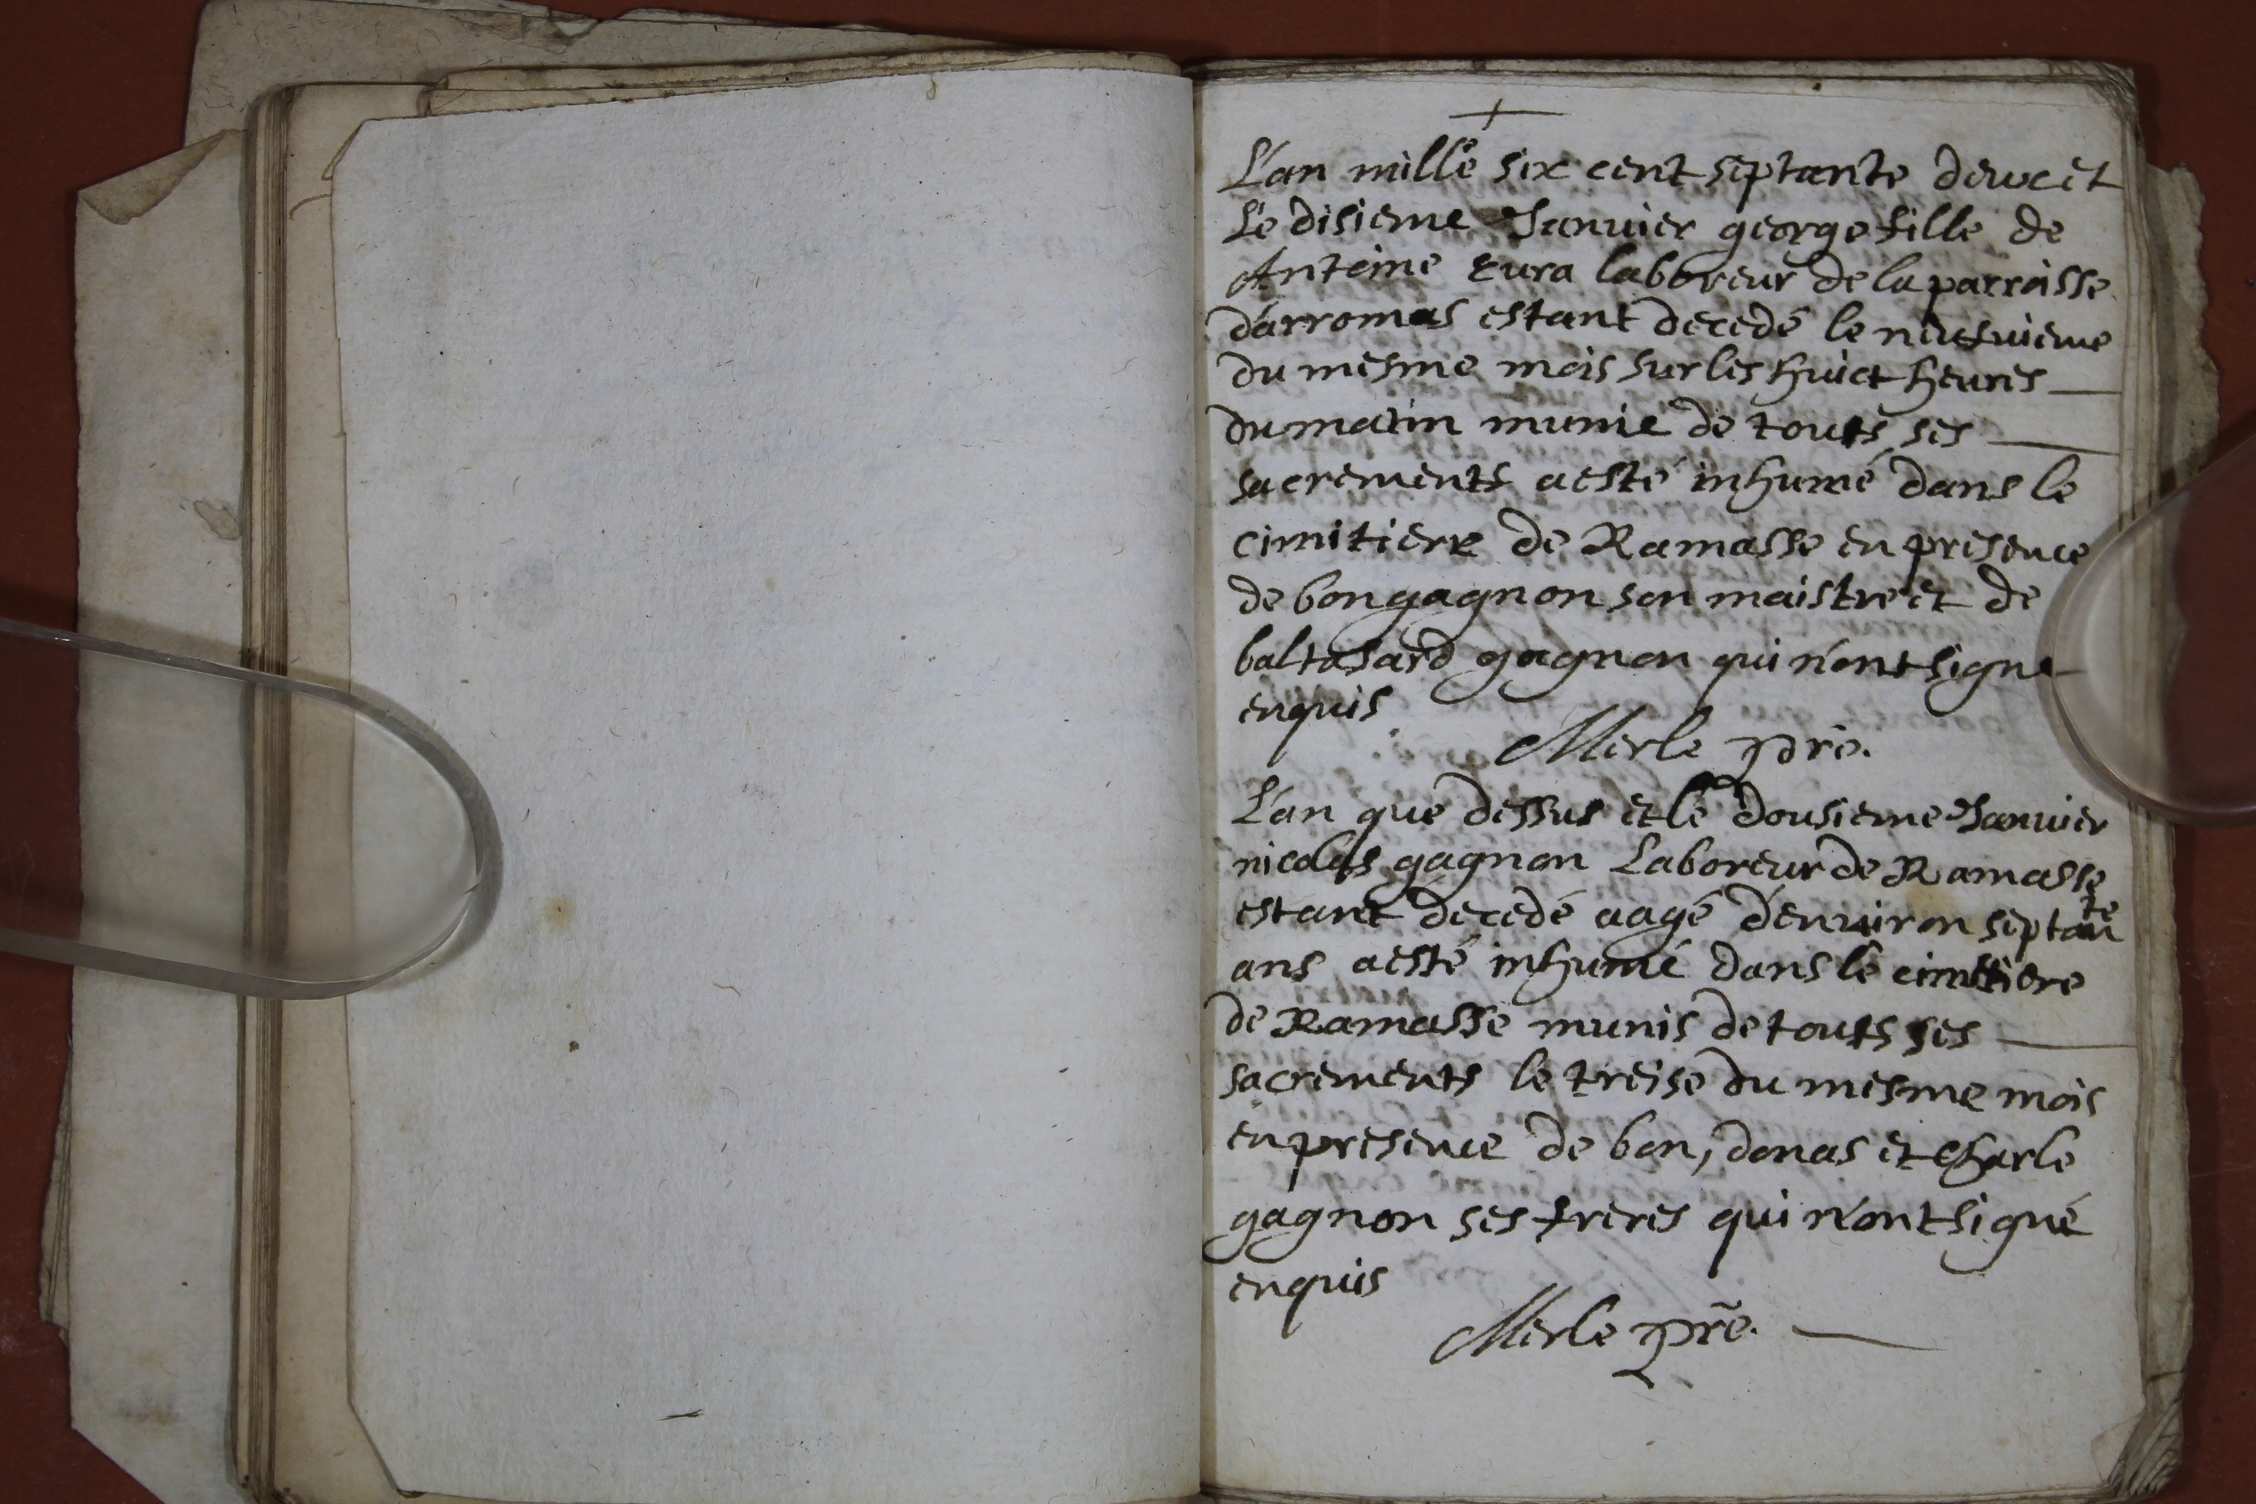 L'an mille six cent septante deux et
Le disieme Januier george fille de
Antoine Cura laboreur de la parroisse
d'arromas estant decedé le neufuieme
du mesme mois sur les huict heures
du matin munie de touts ses
sacrements a esté inhumé dans le
cimitiere de Ramasse en presence
de bon gagnon son maistre et de
baltasard gagnon qui n'ont signe
enquis
Merle pre.
L'an que dessus et le dousieme Januier
nicolas gagnon Laboreur de Ramasse
estant decedé aagé d'enuiron septante
ans a esté inhumé dans le cimitiere
de Ramasse munis de touts ses
sacrements le treise du mesme mois
en presence de bon, donas et Charle
gagnon ses freres qui n'ont signé
enquis
Merle pr̃e.